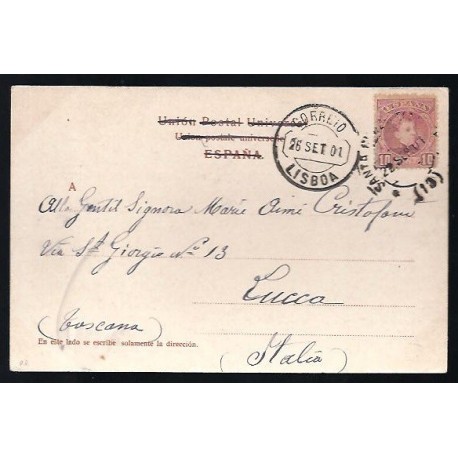 Unión Postal Universal
Union postale universelle
ESPAÑA.
CORREIO
26 SET 01
LISBOA
10 10
SANTA
22 SEP 01
A
Alla Gentil Signora Marie Aimé Cristofani
Via Sn Giorgio No 13
Lucca
(Toscana)
(Italia)
En este lado se escribe solamente la dirección.